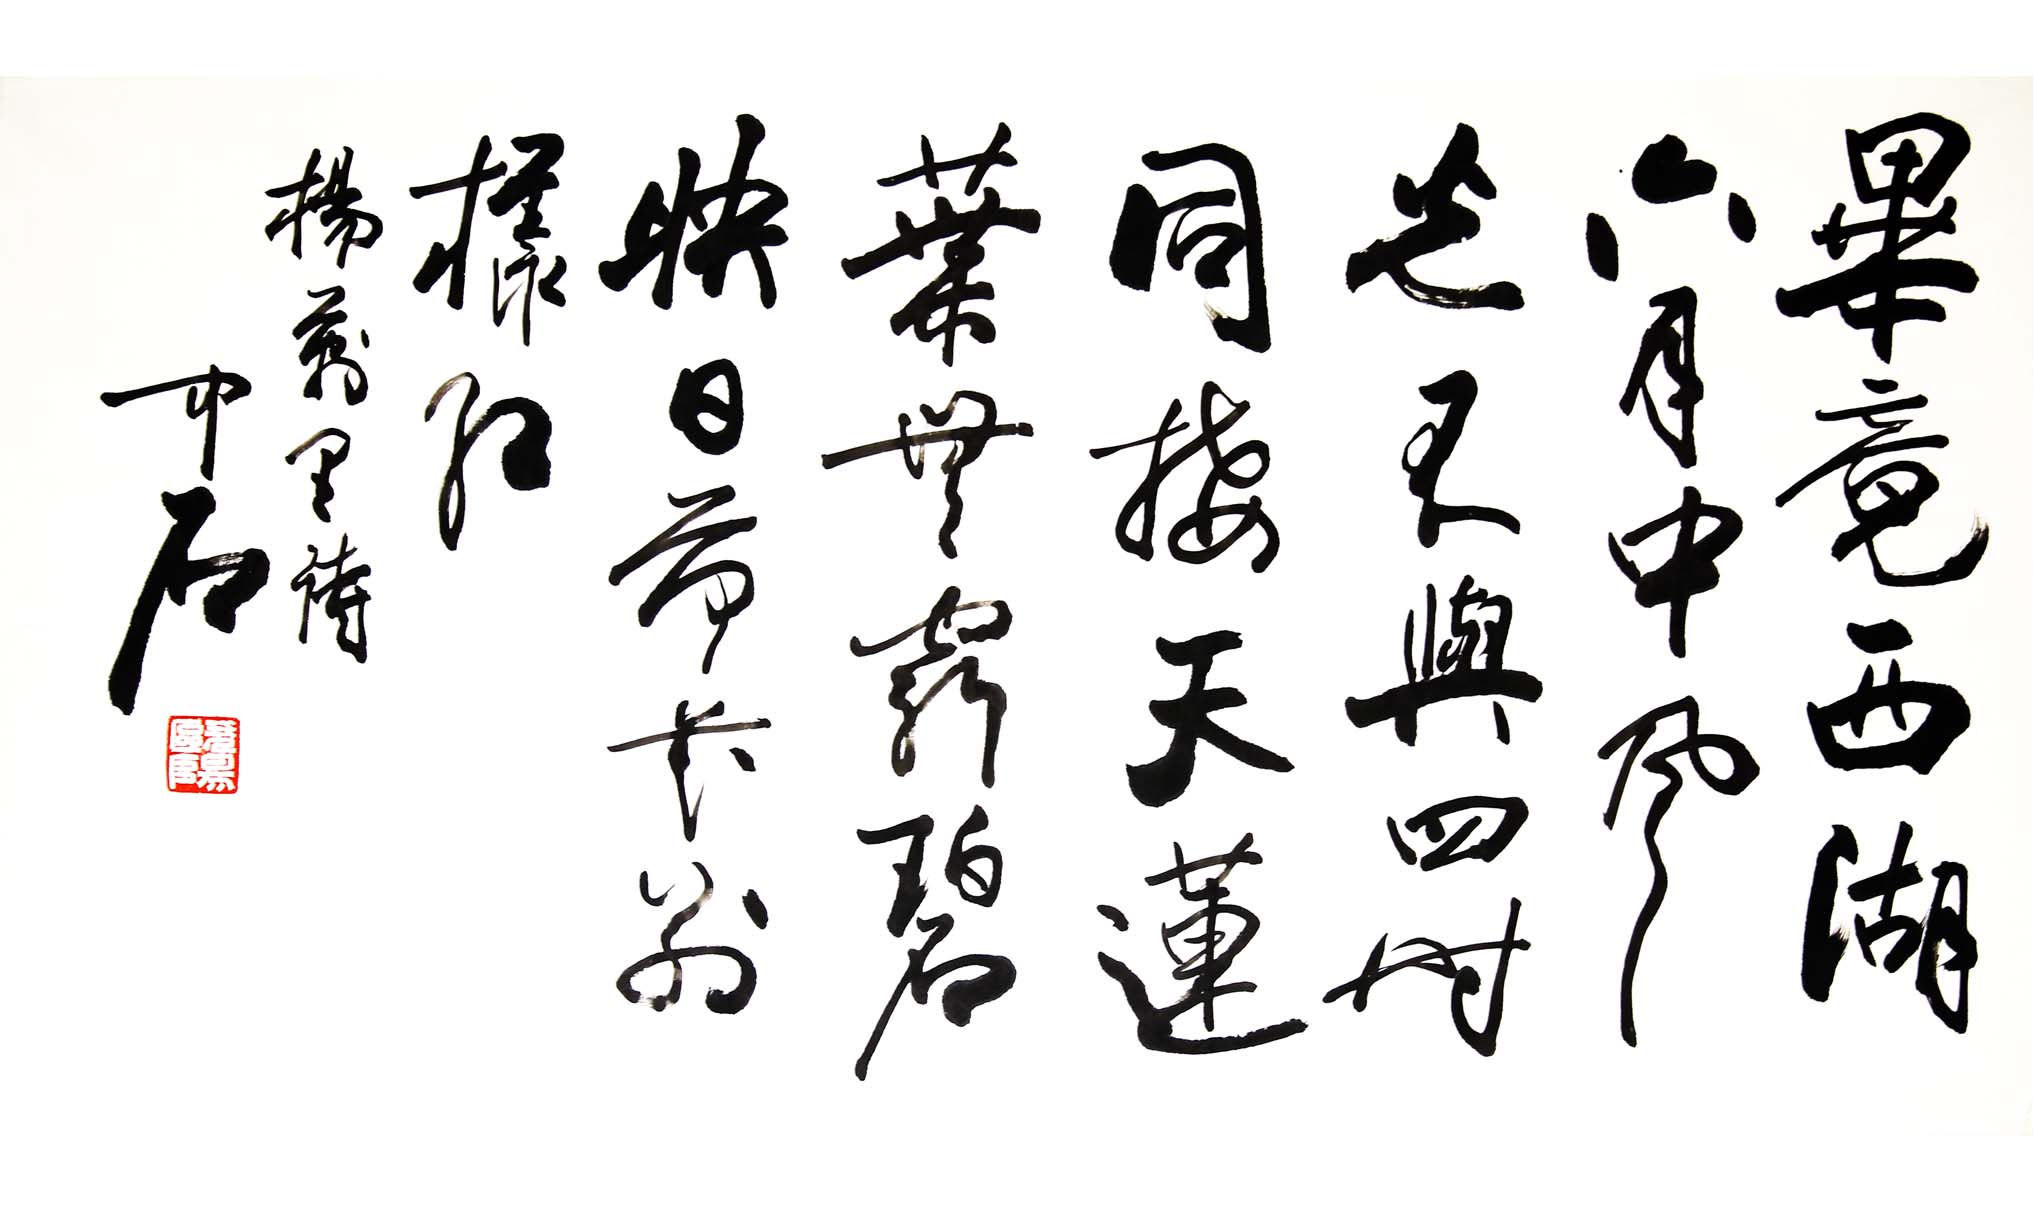 畢竟西湖
六月中風
光不與四時
同接天蓮
葉無窮碧
映日荷花別
樣紅
楊萬里詩
中石